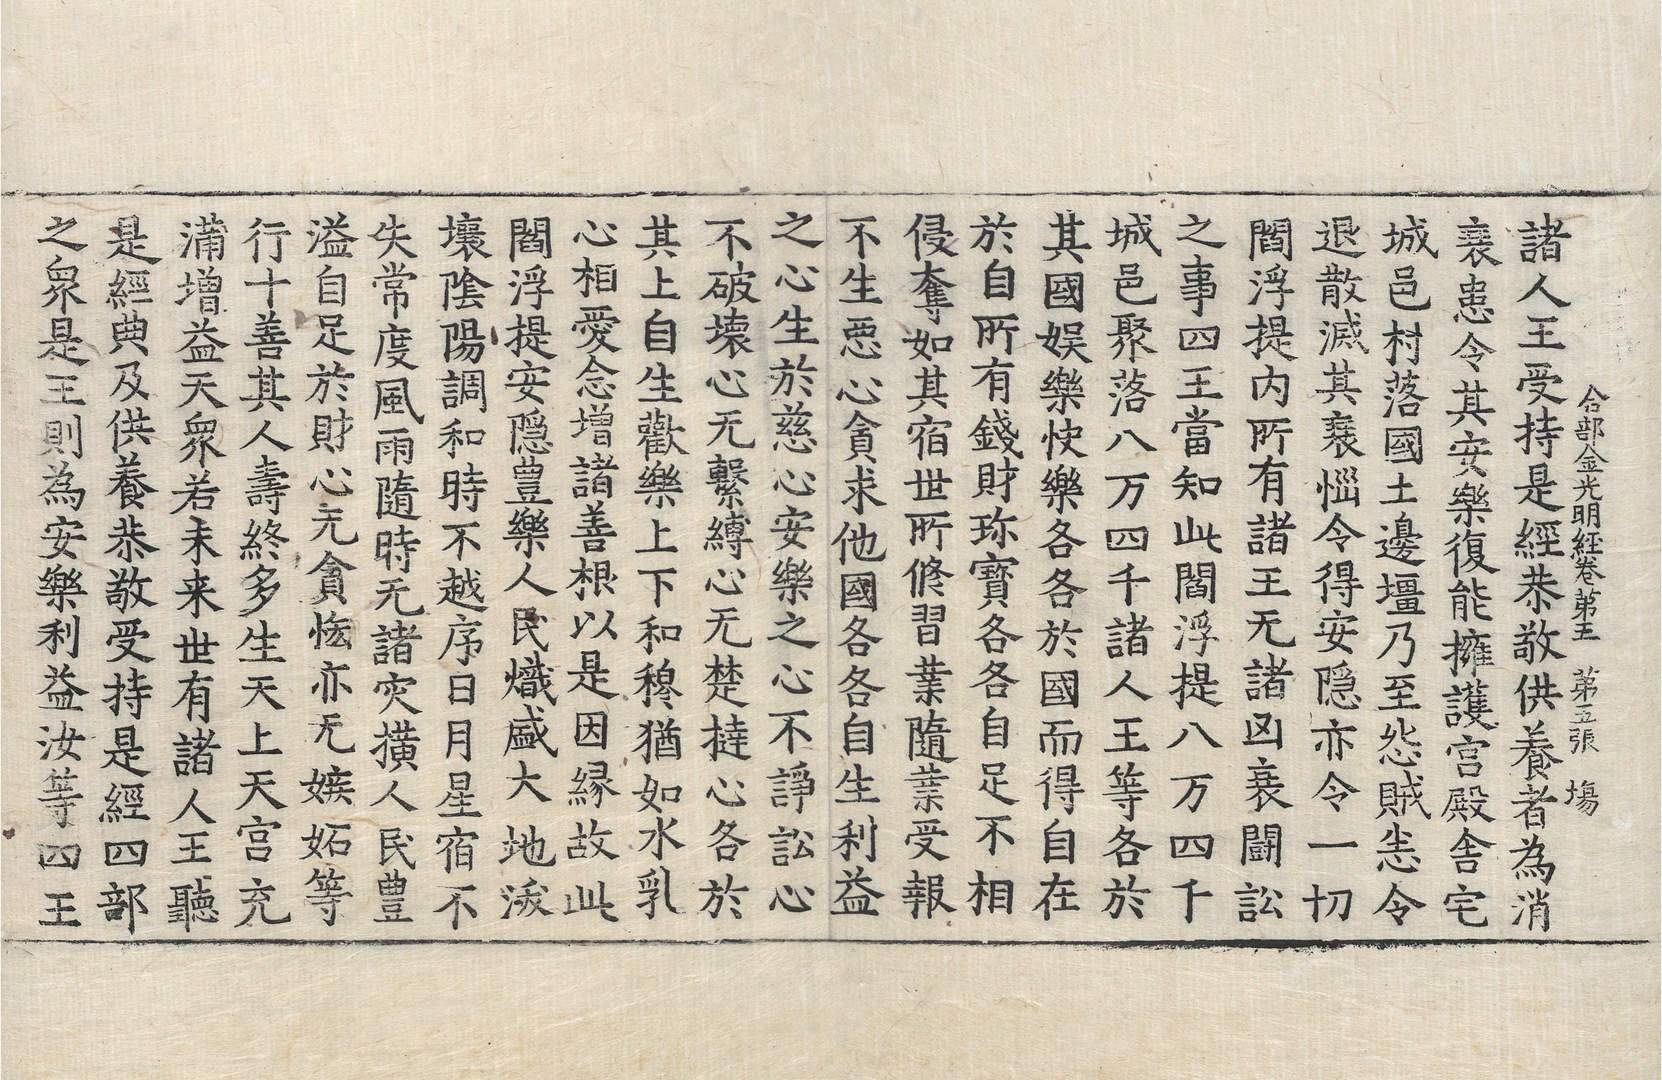 合部金光明經卷第五 第五張 塲
諸人王受持是經恭敬供養者為消
衰患令其安樂復能擁護宮殿舍宅
城邑村落國土邊壃乃至怨賊恚令
退散滅其衰惱令得安隱亦令一切
閻浮提内所有諸王无諸凶衰鬪訟
之事四王當知此閻浮提八万四千
城邑聚落八万四千諸人王等各於
其國娛樂快樂各各於國而得自在
於自所有錢財珎寳各各自足不相
侵奪如其宿世所修習業隨業受報
不生惡心貪求他國各各自生利益
之心生於慈心安樂之心不諍訟心
不破壞心无繫縛心无楚撻心各於
其上自生歡樂上下和穆猶如水乳
心相愛念增諸善根以是因緣故此
閻浮提安隱豊樂人民熾盛大地沃
壤陰陽調和時不越序日月星宿不
失常度風雨隨時无諸灾橫人民豊
溢自足於財心无貪悋亦无嫉妬等
行十善其人壽終多生天上天宮充
滿增益天衆若未来世有諸人王聽
是經典及供養恭敬受持是經四部
之衆是王則為安樂利益汝等四王